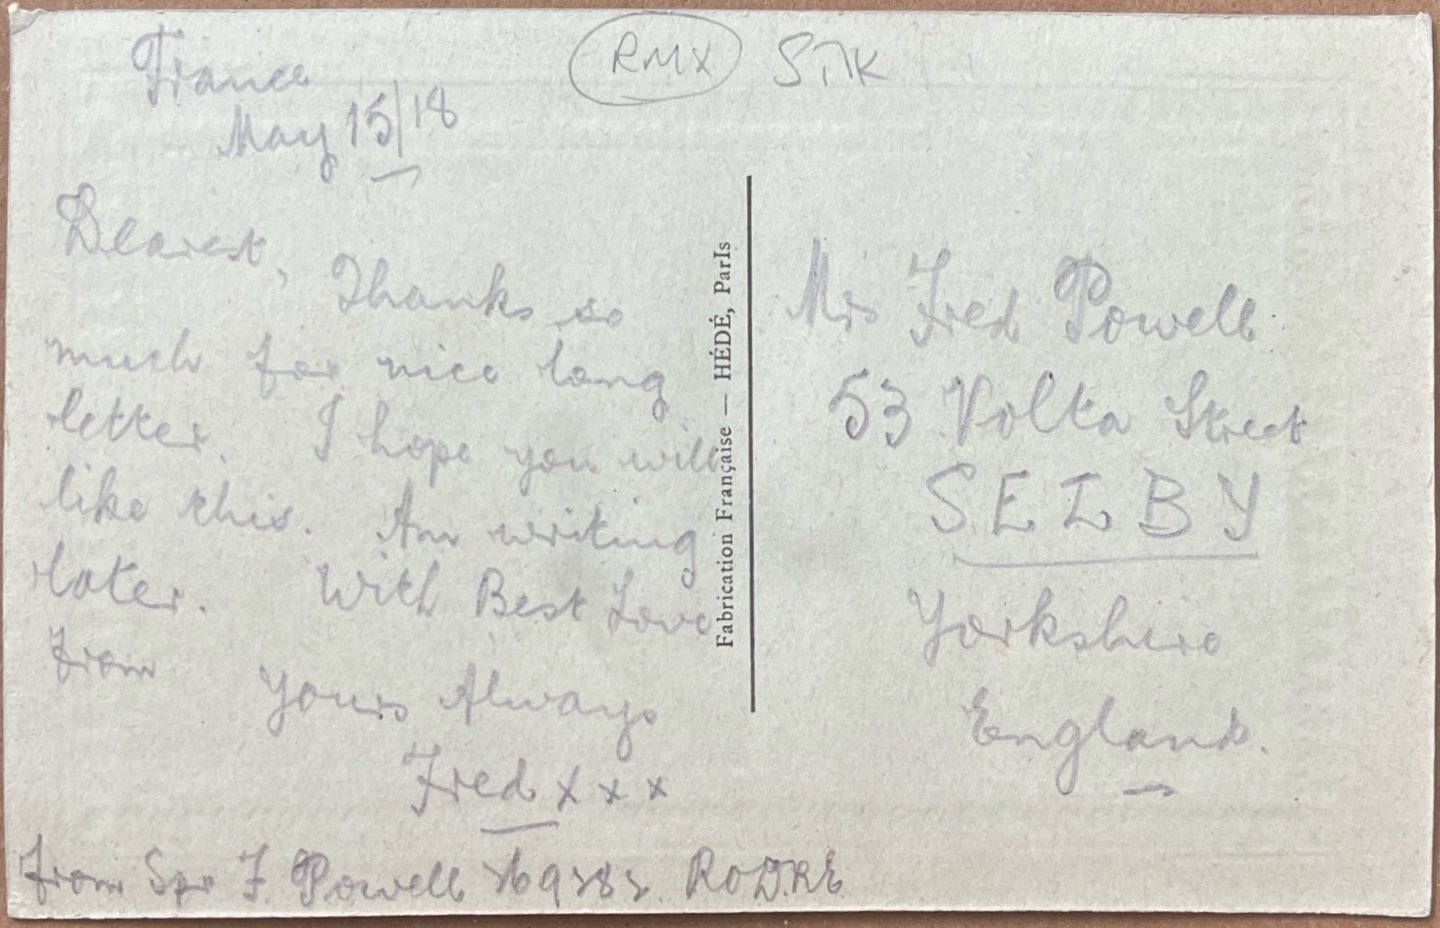 RMX STK
France
May 15/18
Dearest,
Thanks so
much for nice long
letter. I hope you will
like this. Am writing
later. With Best Love
from
Yours Always
Fred x x x
from Spr F. Powell
Fabrication Française — HÉDÉ, ParIs
Mrs Fred Powell
53 Volta Street
SELBY
Yorkshire
England.